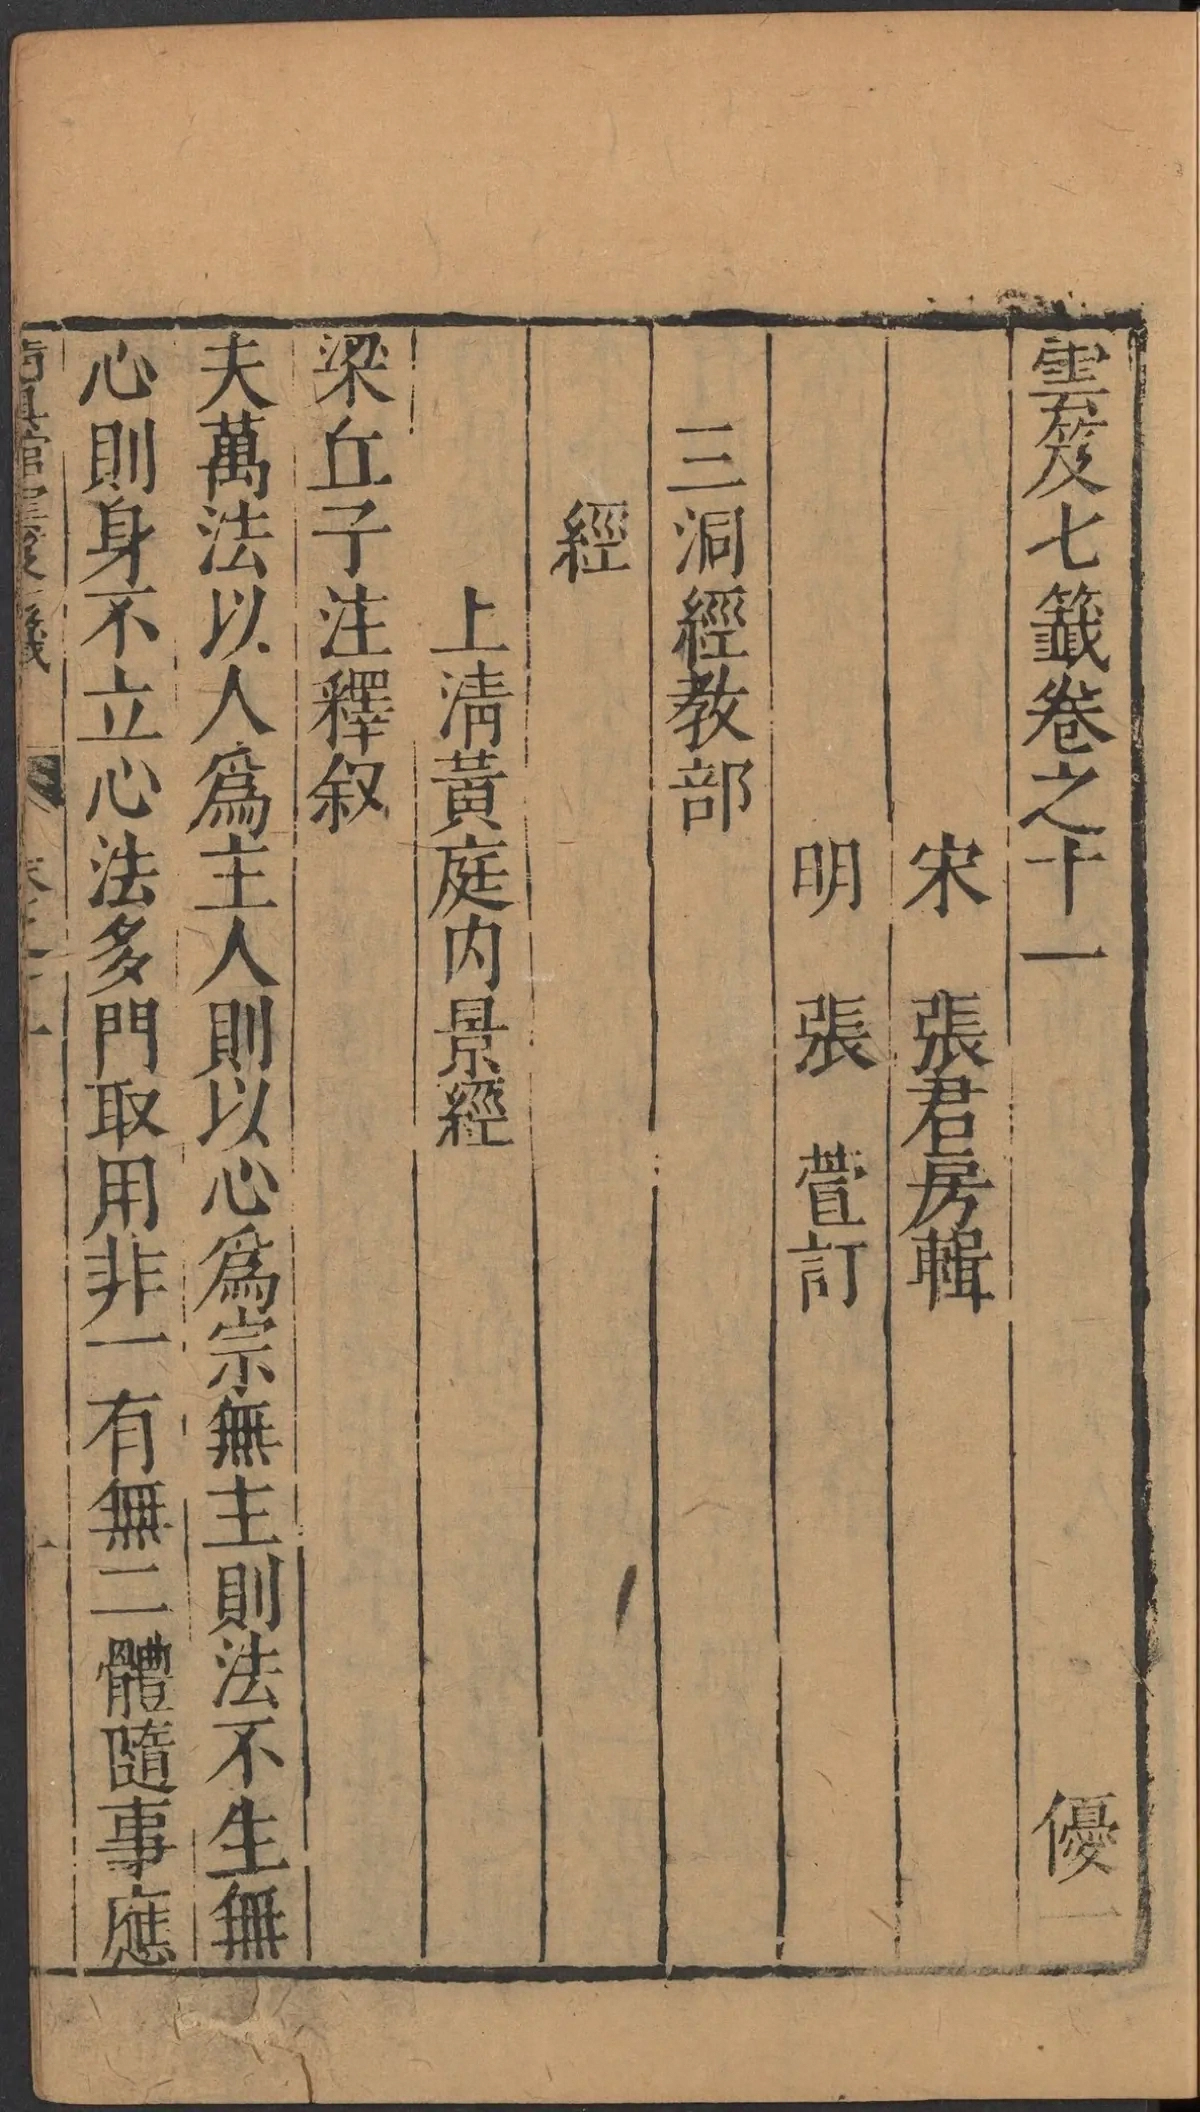 雲笈七籤卷之十一　優一
宋　張君房輯
明　張　萱訂
三洞經教部
經
上清黃庭內景經
梁丘子注釋叙
夫萬法以人爲主人則以心爲宗無主則法不生無
心則身不立心法多門取用非一有無二體隨事應